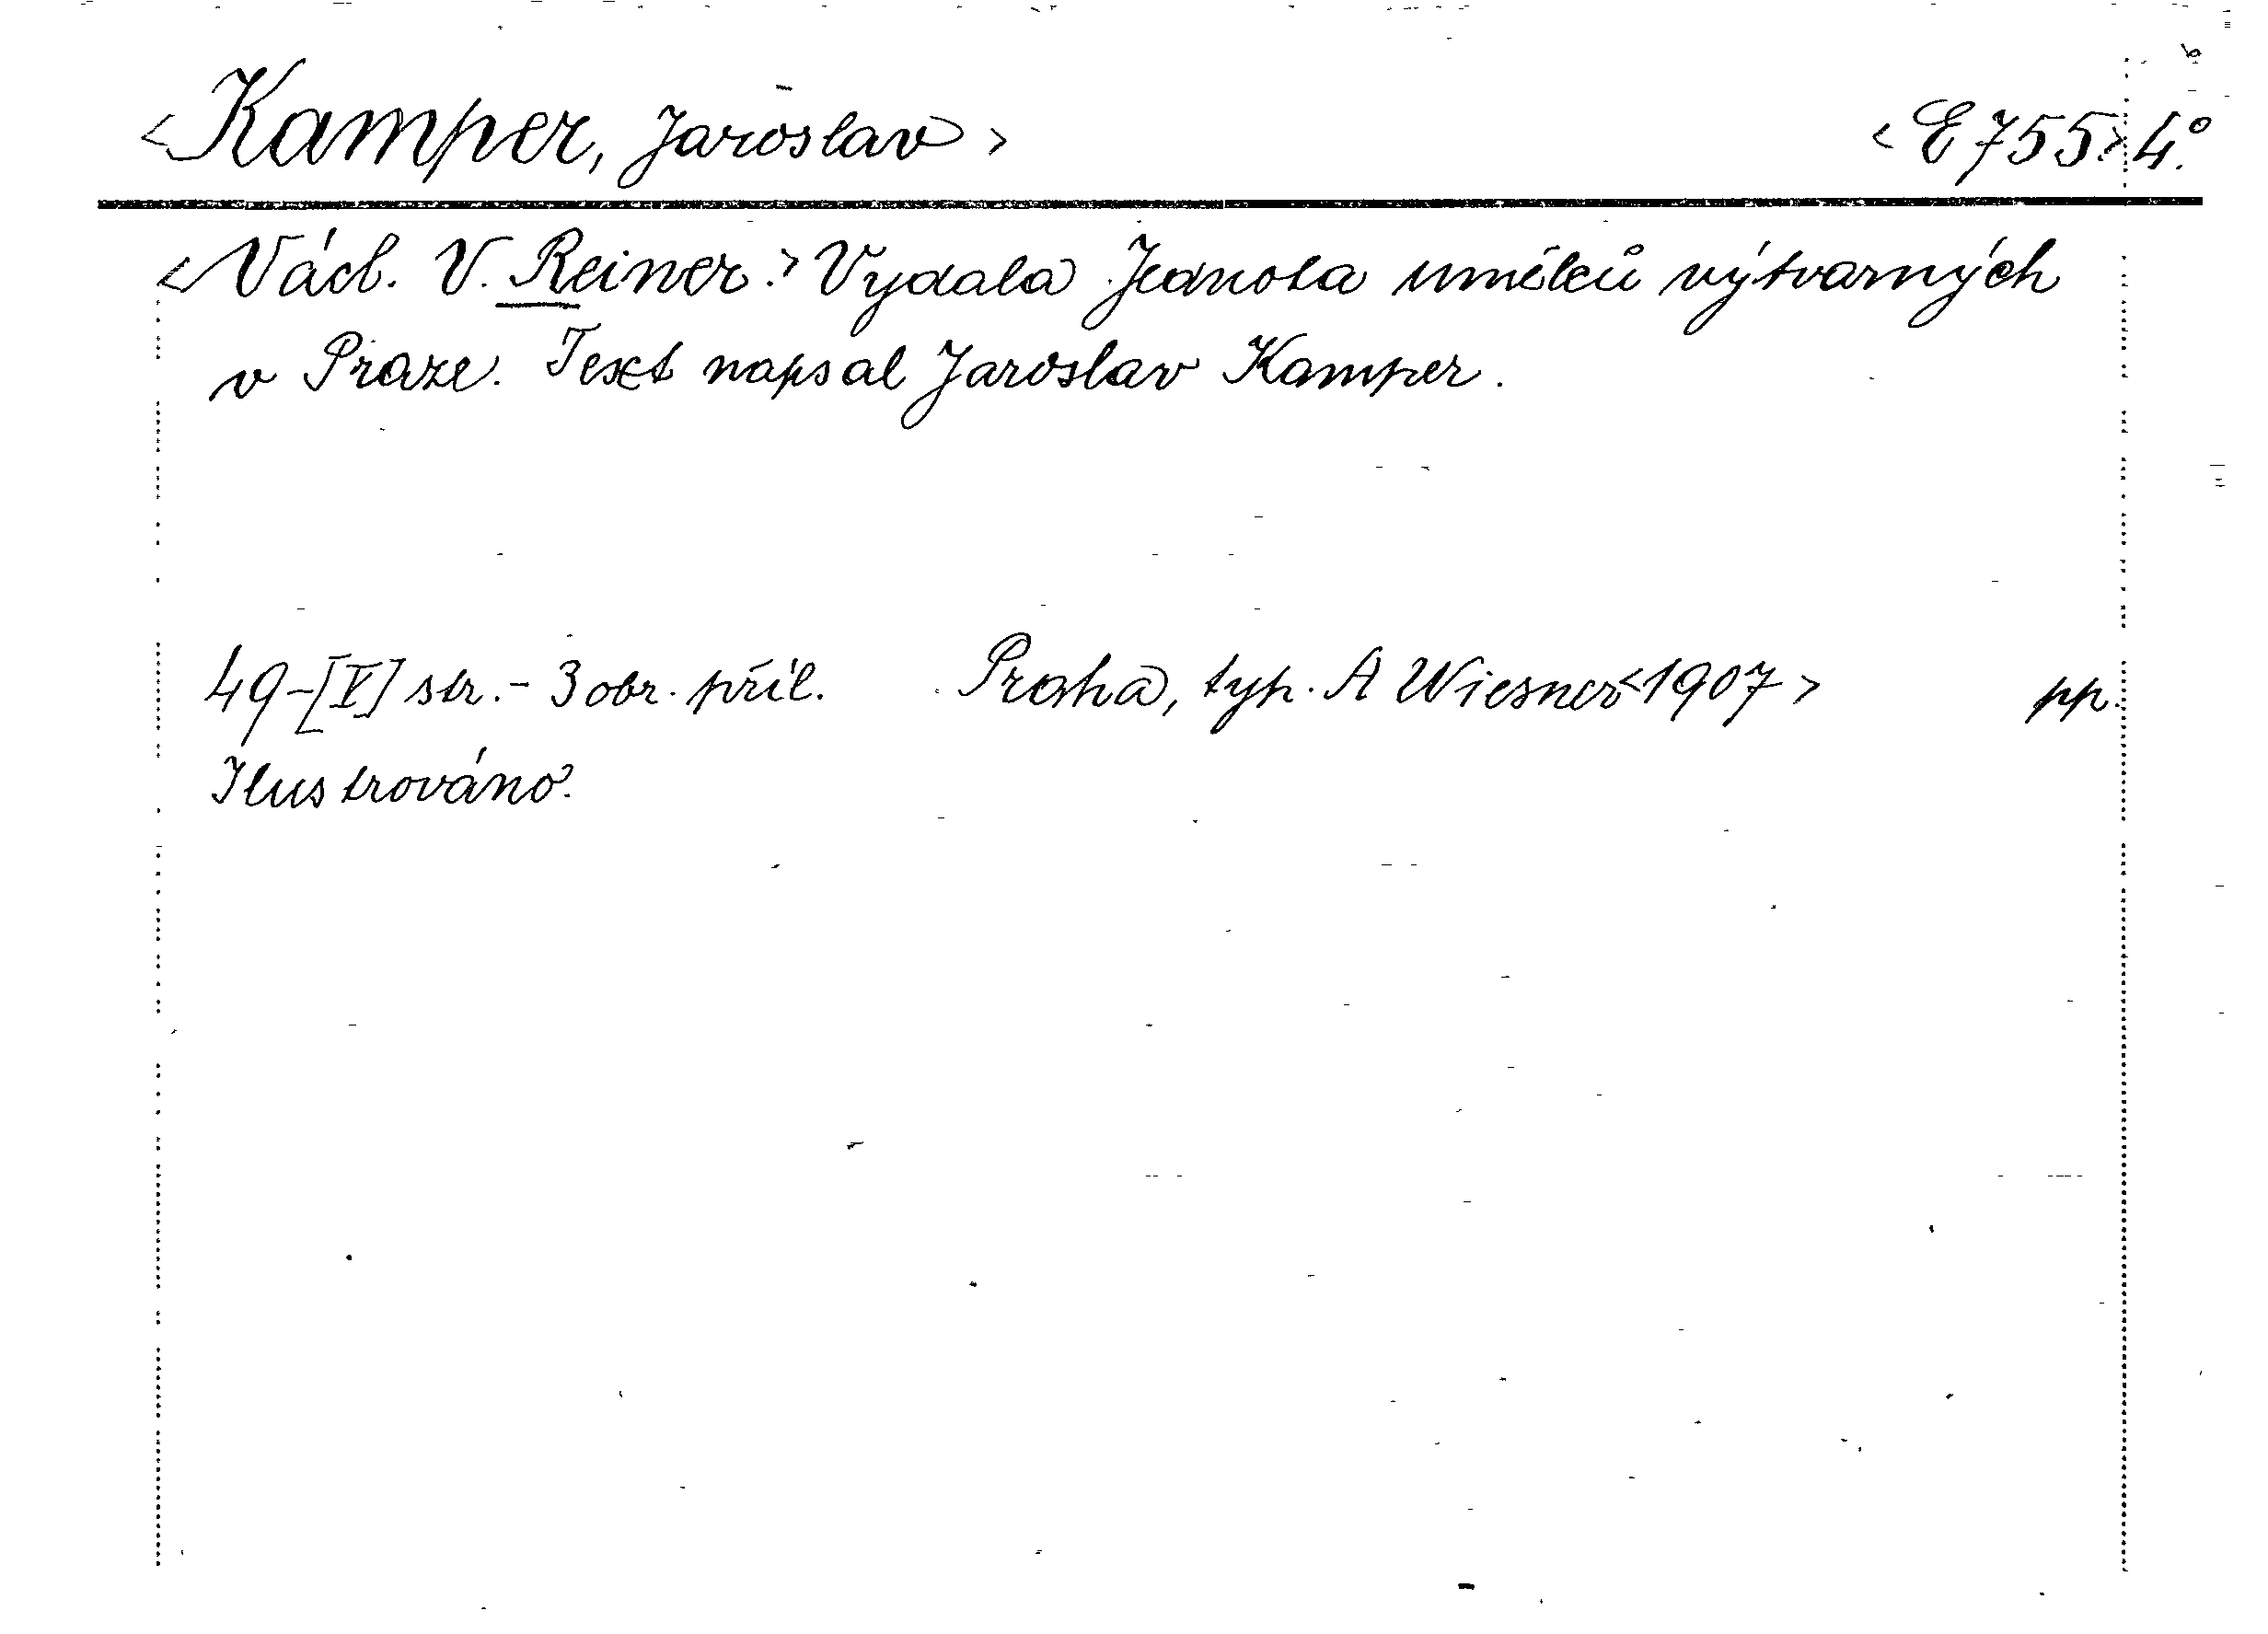 <Kamper, Jaroslav> <E755>4.°
<Václ. V. Reiner.> Vydala Jednota umělců výtvarných
v Praze. Text napsal Jaroslav Kamper.
49-[V] str.- 3 obr. příl. Praha, typ. A Wiesner<1907> pp.
Ilustrováno.